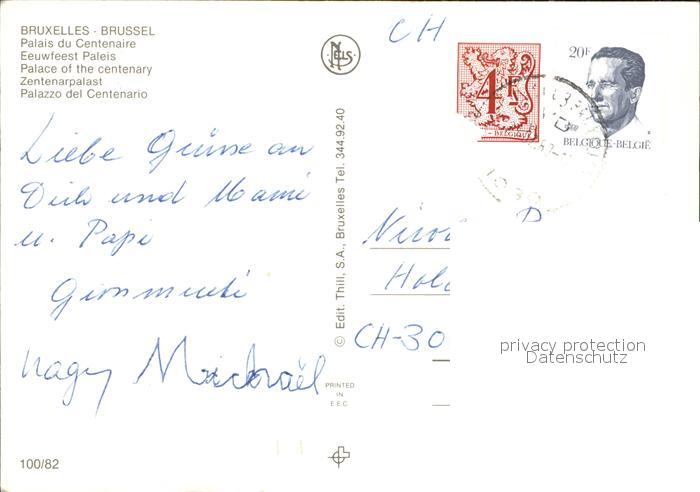 BRUXELLES - BRUSSEL
Palais du Centenaire
Eeuwfeest Paleis
Palace of the centenary
Zentenarpalast
Palazzo del Centenario
NELS
CH
4F
BELGIQUE
20F
BELGIQUE-BELGIË
Liebe Grüsse an
Dich und Mami
u. Papi
nagy Mickaël
© Edit. Thill, S.A., Bruxelles Tel. 344.92.40
CH-30
privacy protection
Datenschutz
PRINTED
IN
E.E.C.
100/82